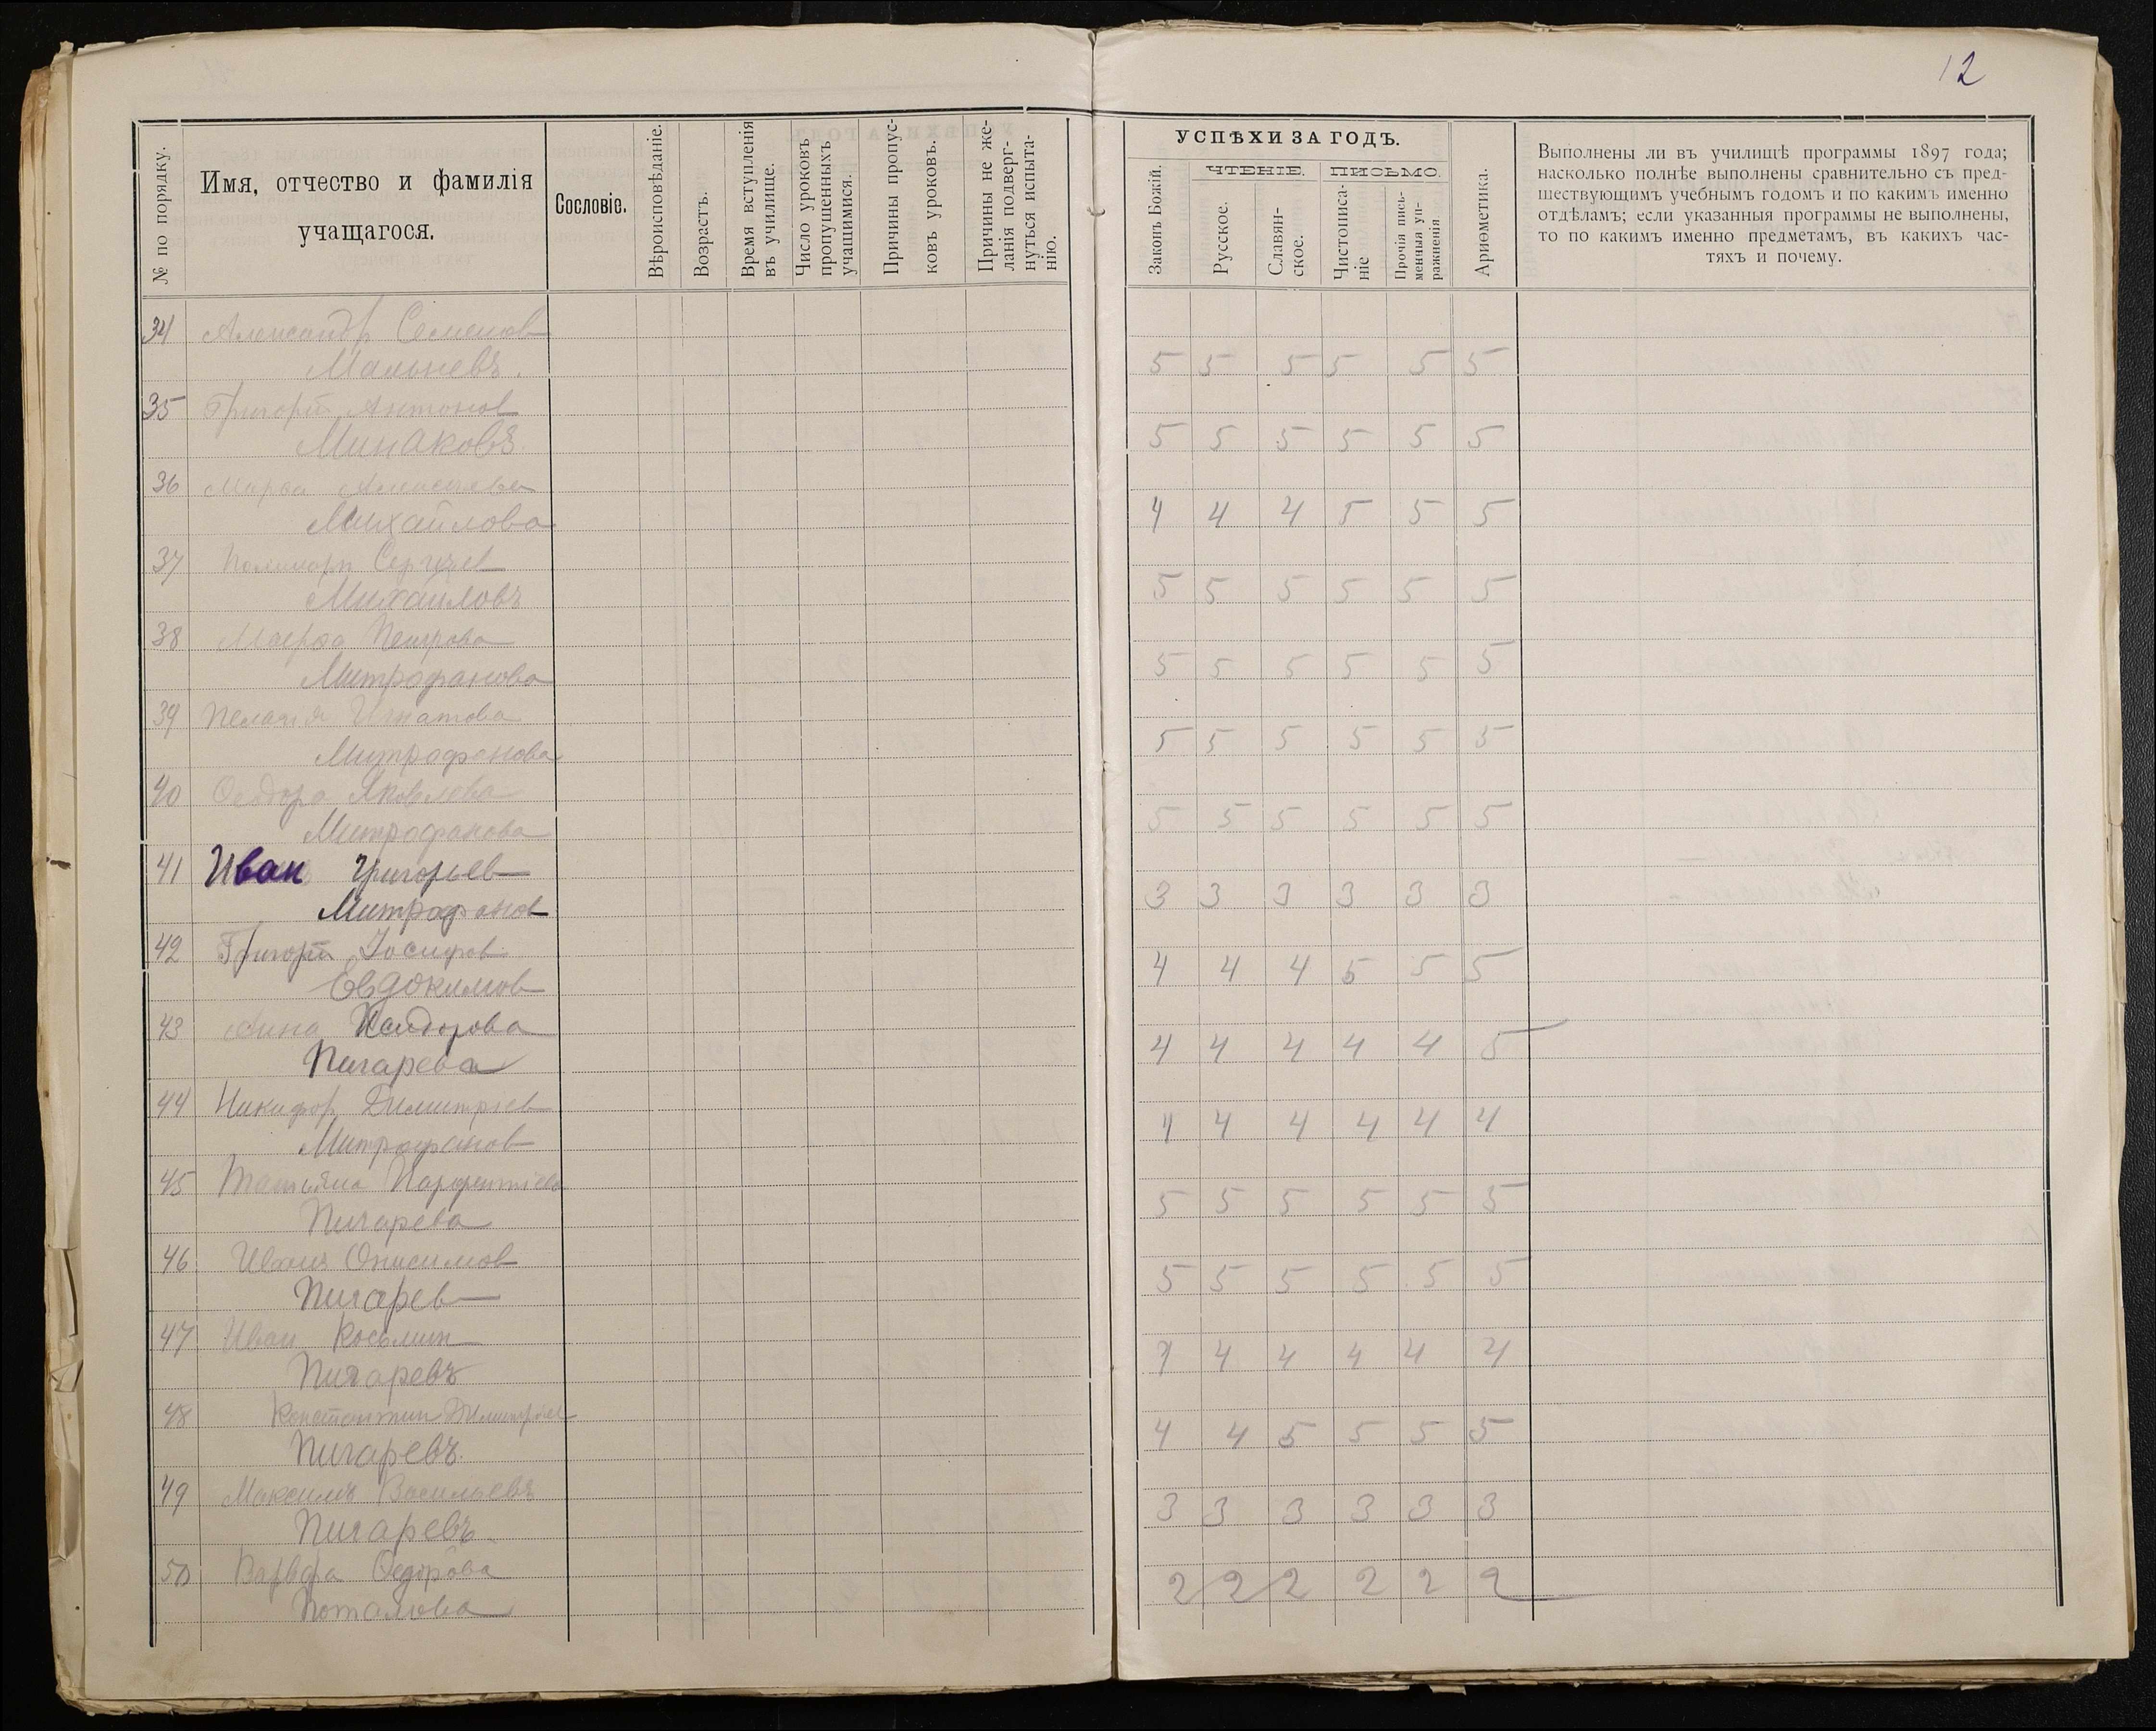 12
№ по порядку.
Имя, отчество и фамилія
учащагося.
Сословіе.
Вѣроисповѣданіе.
Возрастъ.
Время вступленія
въ училище.
Число уроковъ
пропущенныхъ
учащимися.
Причины пропус-
ковъ уроковъ.
Причины не же-
ланія подверг-
нуться испыта-
нію.
УСПѢХИ ЗА ГОДЪ.
Законъ Божій.
ЧТЕНІЕ.
Русское.
Славян-
ское.
ПИСЬМО.
Чистописа-
ніе
Прочія пись-
менныя уп-
ражненія
Ариѳметика.
Выполнены ли въ училищѣ программы 1897 года;
насколько полнѣе выполнены сравнительно съ пред-
шествующимъ учебнымъ годомъ и по какимъ именно
отдѣламъ; если указанныя программы не выполнены,
то по какимъ именно предметамъ, въ какихъ час-
тяхъ и почему.
34 Александр Семенов
Мальневъ. 5 5 5 5 5 5
35 Григорій Антонов
Минаковъ. 5 5 5 5 5 5
36 Марѳа
Михайлова 4 4 4 5 5 5
37 Поликарп Сергѣев
Михайловъ 5 5 5 5 5 5
38 Марѳа Петрова
Митрофанова 5 5 5 5 5 5
39 Пелагія Игнатова
Митрофанова 5 5 5 5 5 5
40 Ѳеодора Яковлева
Митрофанова 5 5 5 5 5 5
41 Иван Григорьев
Митрофанов 3 3 3 3 3 3
42 Григорій Іосифов
Евдокимов 4 4 4 5 5 5
43 Анна Исидорова
Пигарева 4 4 4 4 4 5
44 Никифор Димитріев
Митрофанов 4 4 4 4 4 4
45 Татьяна Парфентіева
Пигарева 5 5 5 5 5 5
46 Онисимов
Пигарев 5 5 5 5 5 5
47 Иван Косьмин
Пигаревъ 4 4 4 4 4 4
48 Константин Димитріев
Пигаревъ. 4 4 5 5 5 5
49 Максимъ Васильевъ
Пигаревъ. 3 3 3 3 3 3
50 Варвара Ѳедорова
Потапова 2 2 2 2 2 2